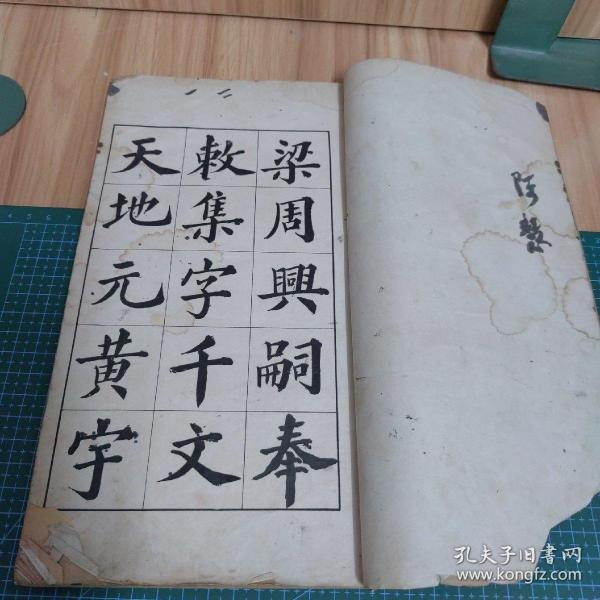 梁周興嗣奉
敕集字千文
天地元黃宇
孔夫子旧书网
www.kongfz.com